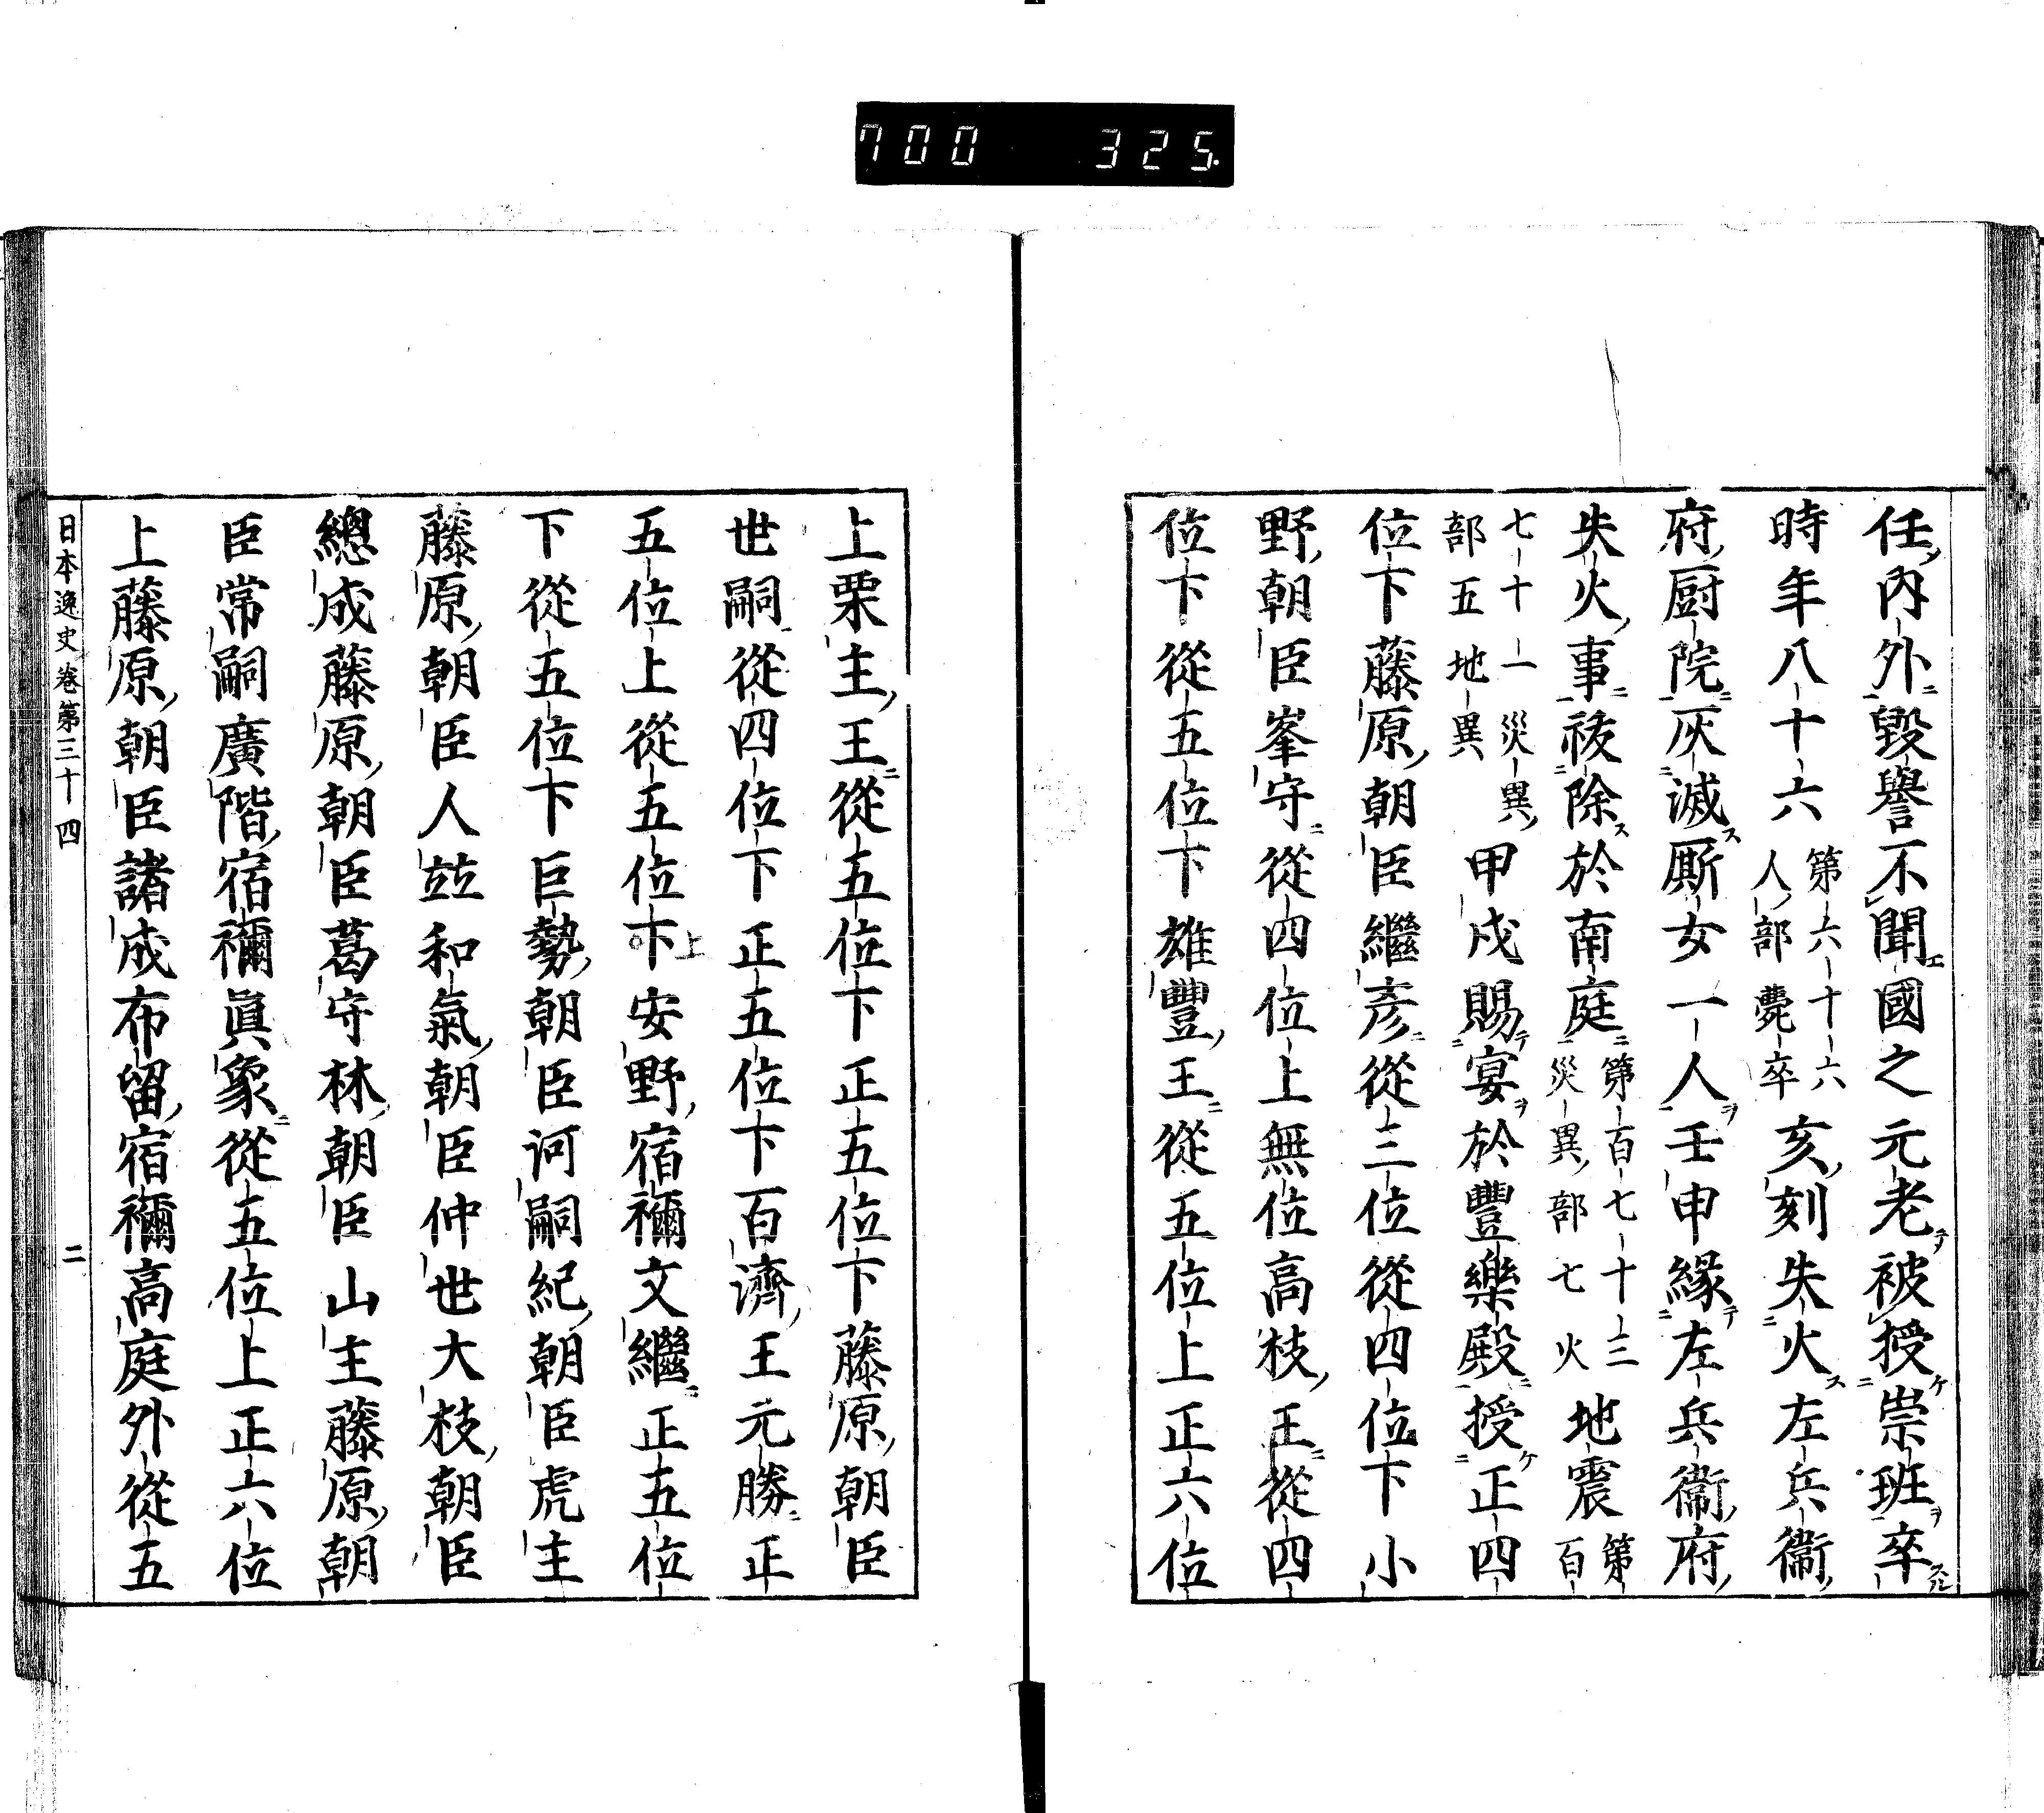 700 325
任內外毀譽不聞國之元老被授崇班卒
時年八十六第六十六人部薨卒亥刻失火左兵衞
府厨院灰滅厮女一人壬申緣左兵衞府
失火事祓除於南庭第百七十三災異部七火地震第百
七十一災異部五地異甲戌賜宴於豐樂殿授正四
位下藤原朝臣繼彥從三位從四位下小
野朝臣峯守從四位上無位高枝王從四
位下從五位下雄豐王從五位上正六位
上栗主王從五位下正五位下藤原朝臣
世嗣從四位下正五位下百濟王元勝正
五位上從五位下上安野宿禰文繼正五位
下從五位下巨勢朝臣訶嗣紀朝臣虎主
藤原朝臣人竝和氣朝臣仲世大枝朝臣
總成藤原朝臣葛守林朝臣山主藤原朝
臣常嗣廣階宿禰眞象從五位上正六位
上藤原朝臣諸成布留宿禰高庭外從五
日本逸史卷第三十四 二